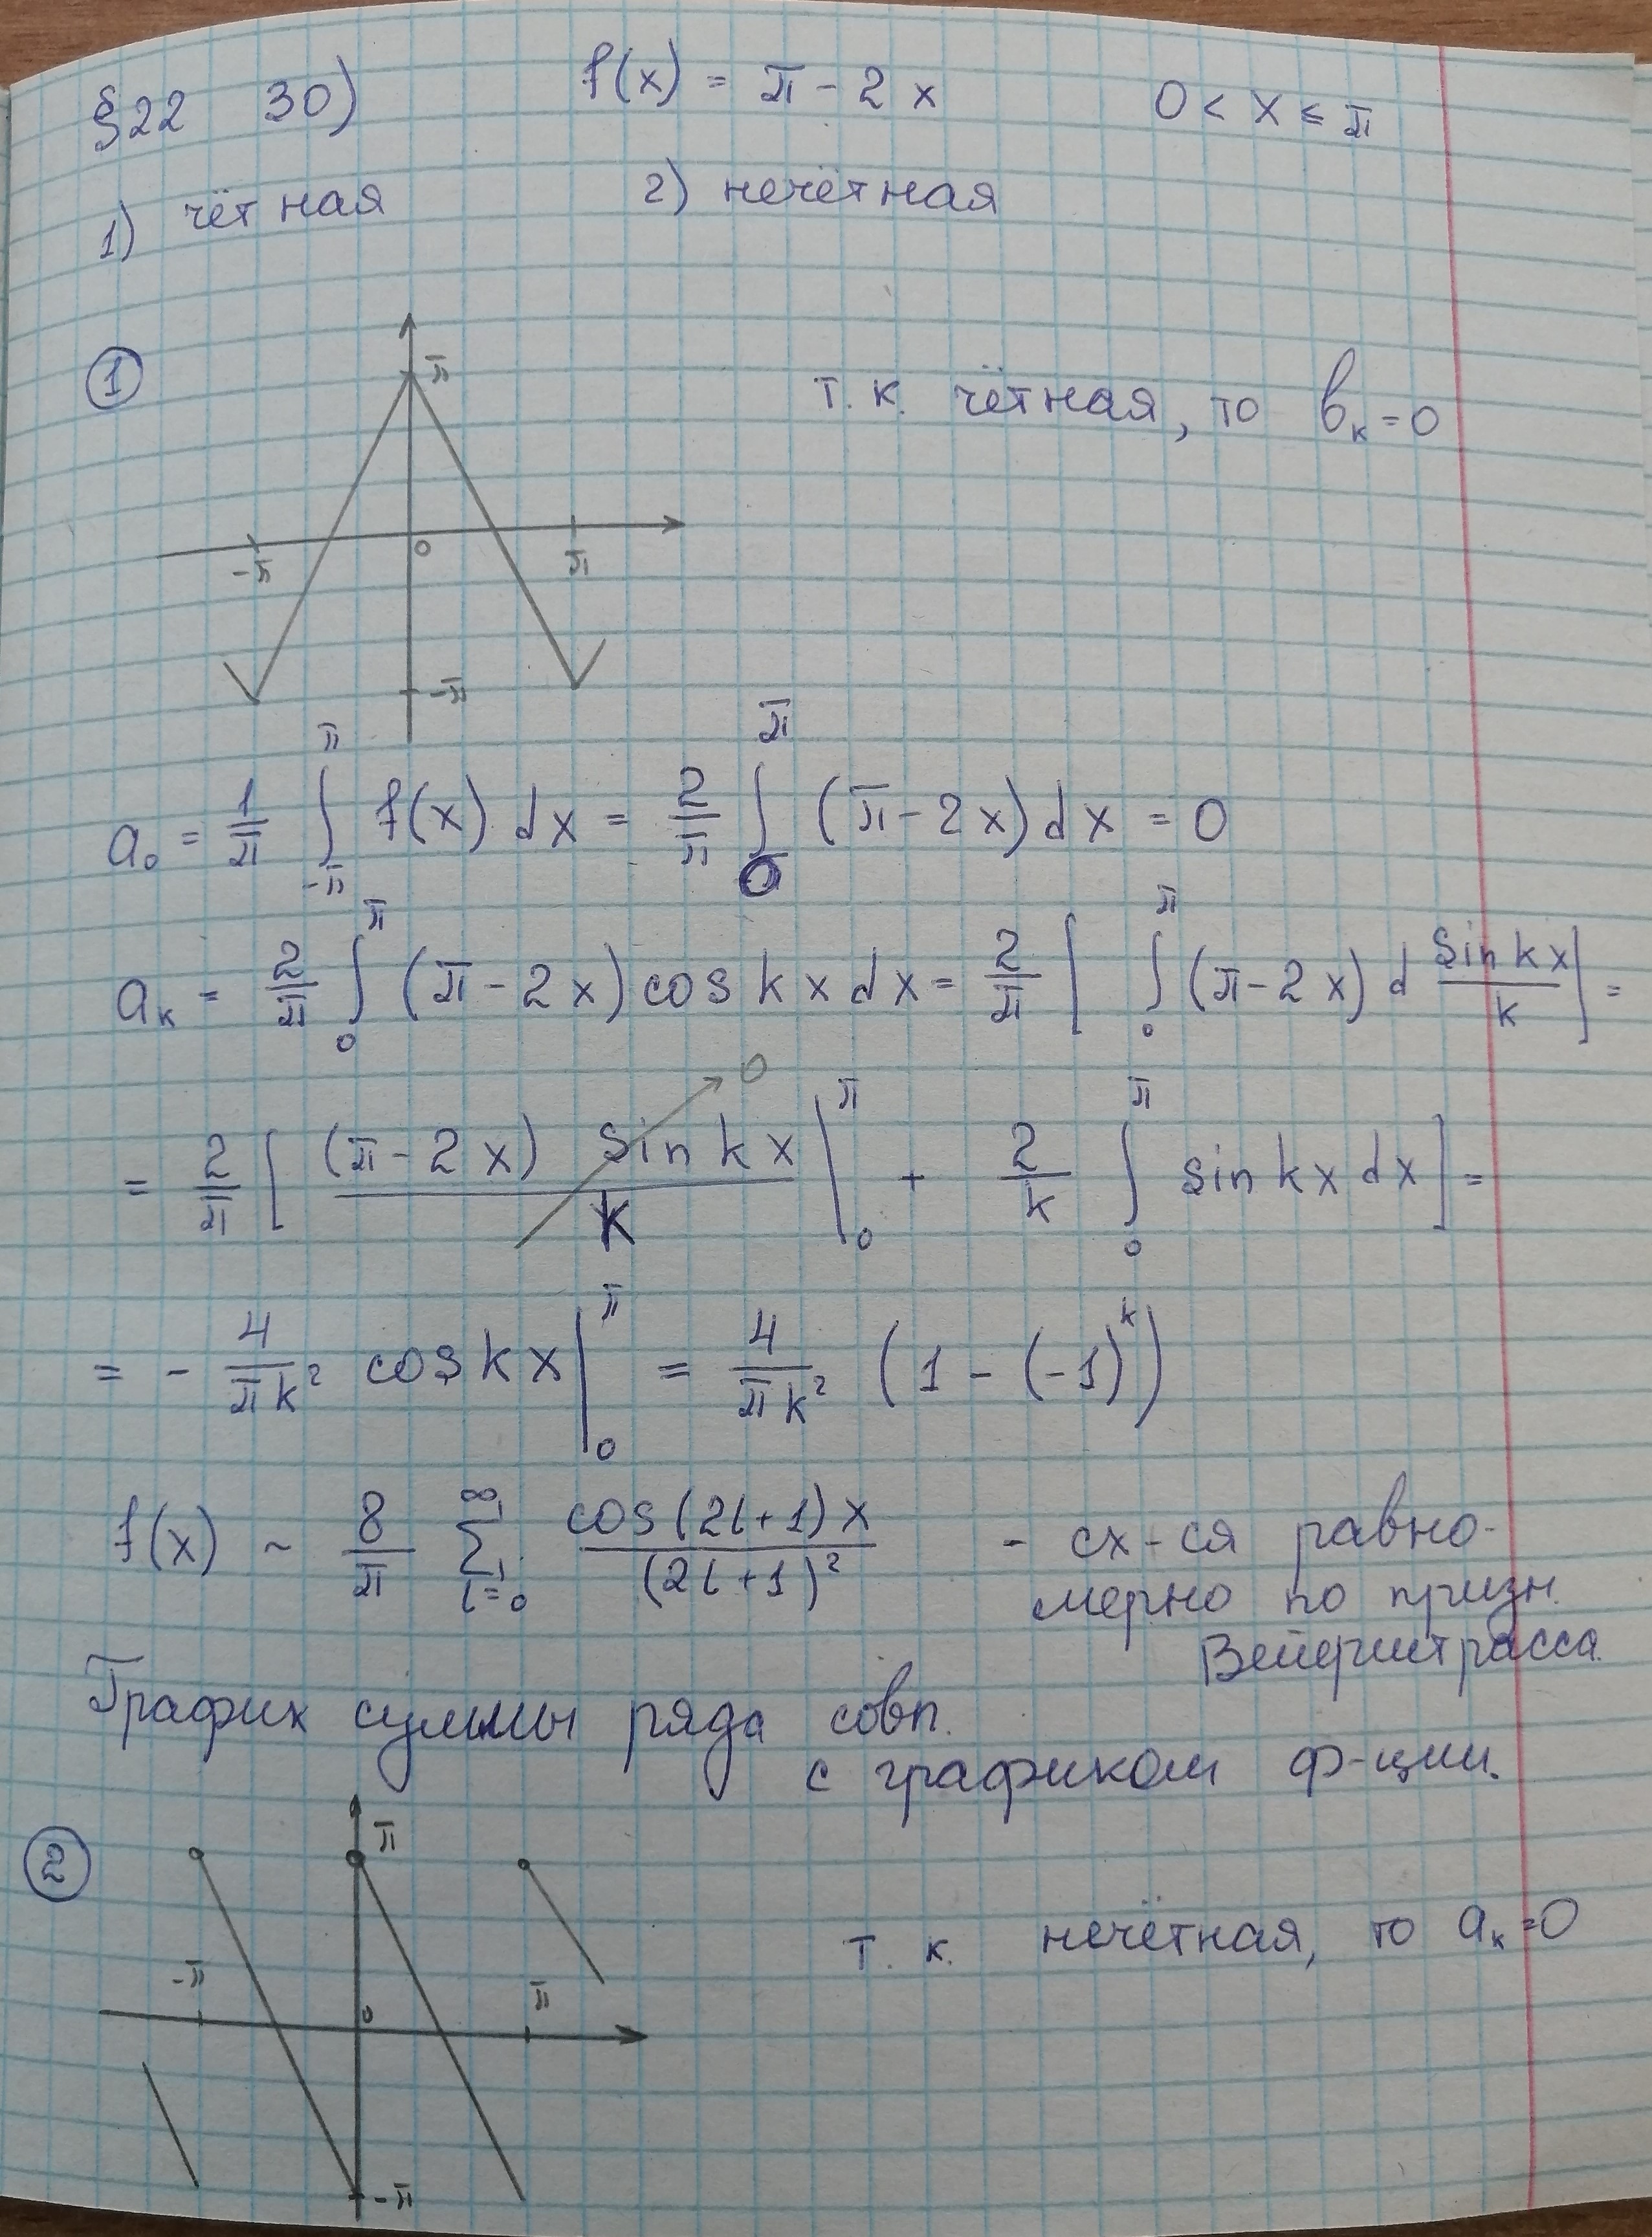 §22 30) f(x) = π - 2x 0 < x ≤ π
1) чётная 2) нечётная
① π т. к. чётная, то bₖ = 0
-π 0 π
-π
a₀ = 1/π ∫_{-π}^{π} f(x) dx = 2/π ∫_0^π (π - 2x) dx = 0
aₖ = 2/π ∫_0^π (π - 2x) cos kx dx = 2/π [ ∫_0^π (π - 2x) d sin kx / k ] =
= 2/π [ (π - 2x) sin kx / k |_0^π → 0 + 2/k ∫_0^π sin kx dx ] =
= - 4/(πk²) cos kx |_0^π = 4/(πk²) (1 - (-1)^k)
f(x) ~ 8/π Σ_{l=0}^∞ cos(2l+1)x / (2l+1)² - сх-ся равно-
мерно по призн.
Вейерштрасса
График суммы ряда совп.
с графиком ф-ции.
② π
т. к. нечётная, то aₖ = 0
-π 0 π
-π